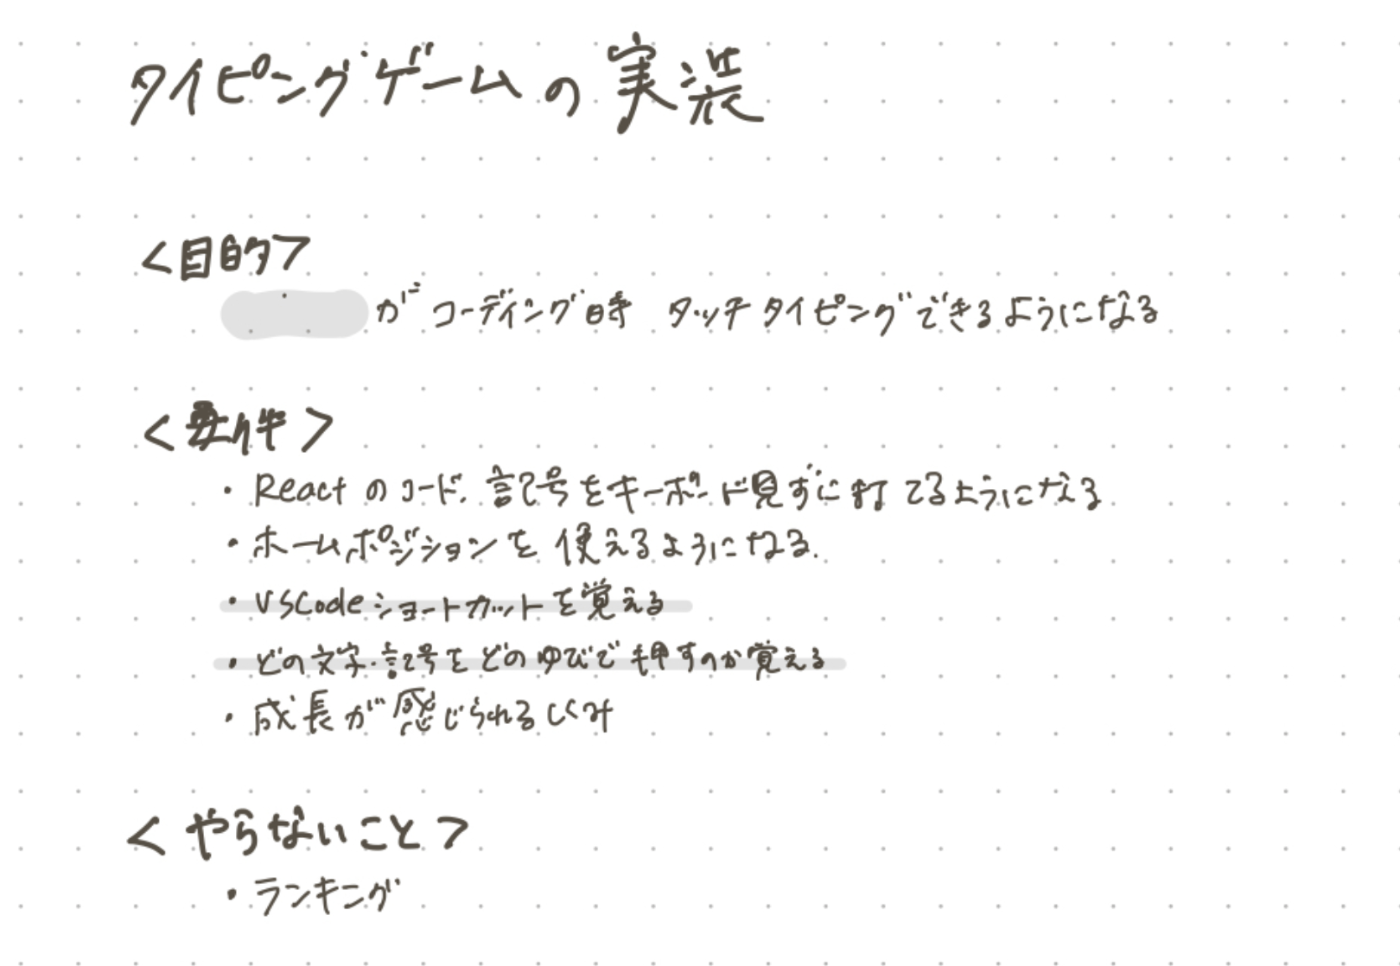 タイピングゲームの実装
<目的>
が コーディング時 タッチタイピングできるようになる
<要件>
・Reactのコード、記号をキーボード見ずに打てるようになる
・ホームポジションを使えるようになる.
・VSCodeショートカットを覚える
・どの文字・記号をどのゆびで押すのか覚える
・成長が感じられるしくみ
<やらないこと>
・ランキング